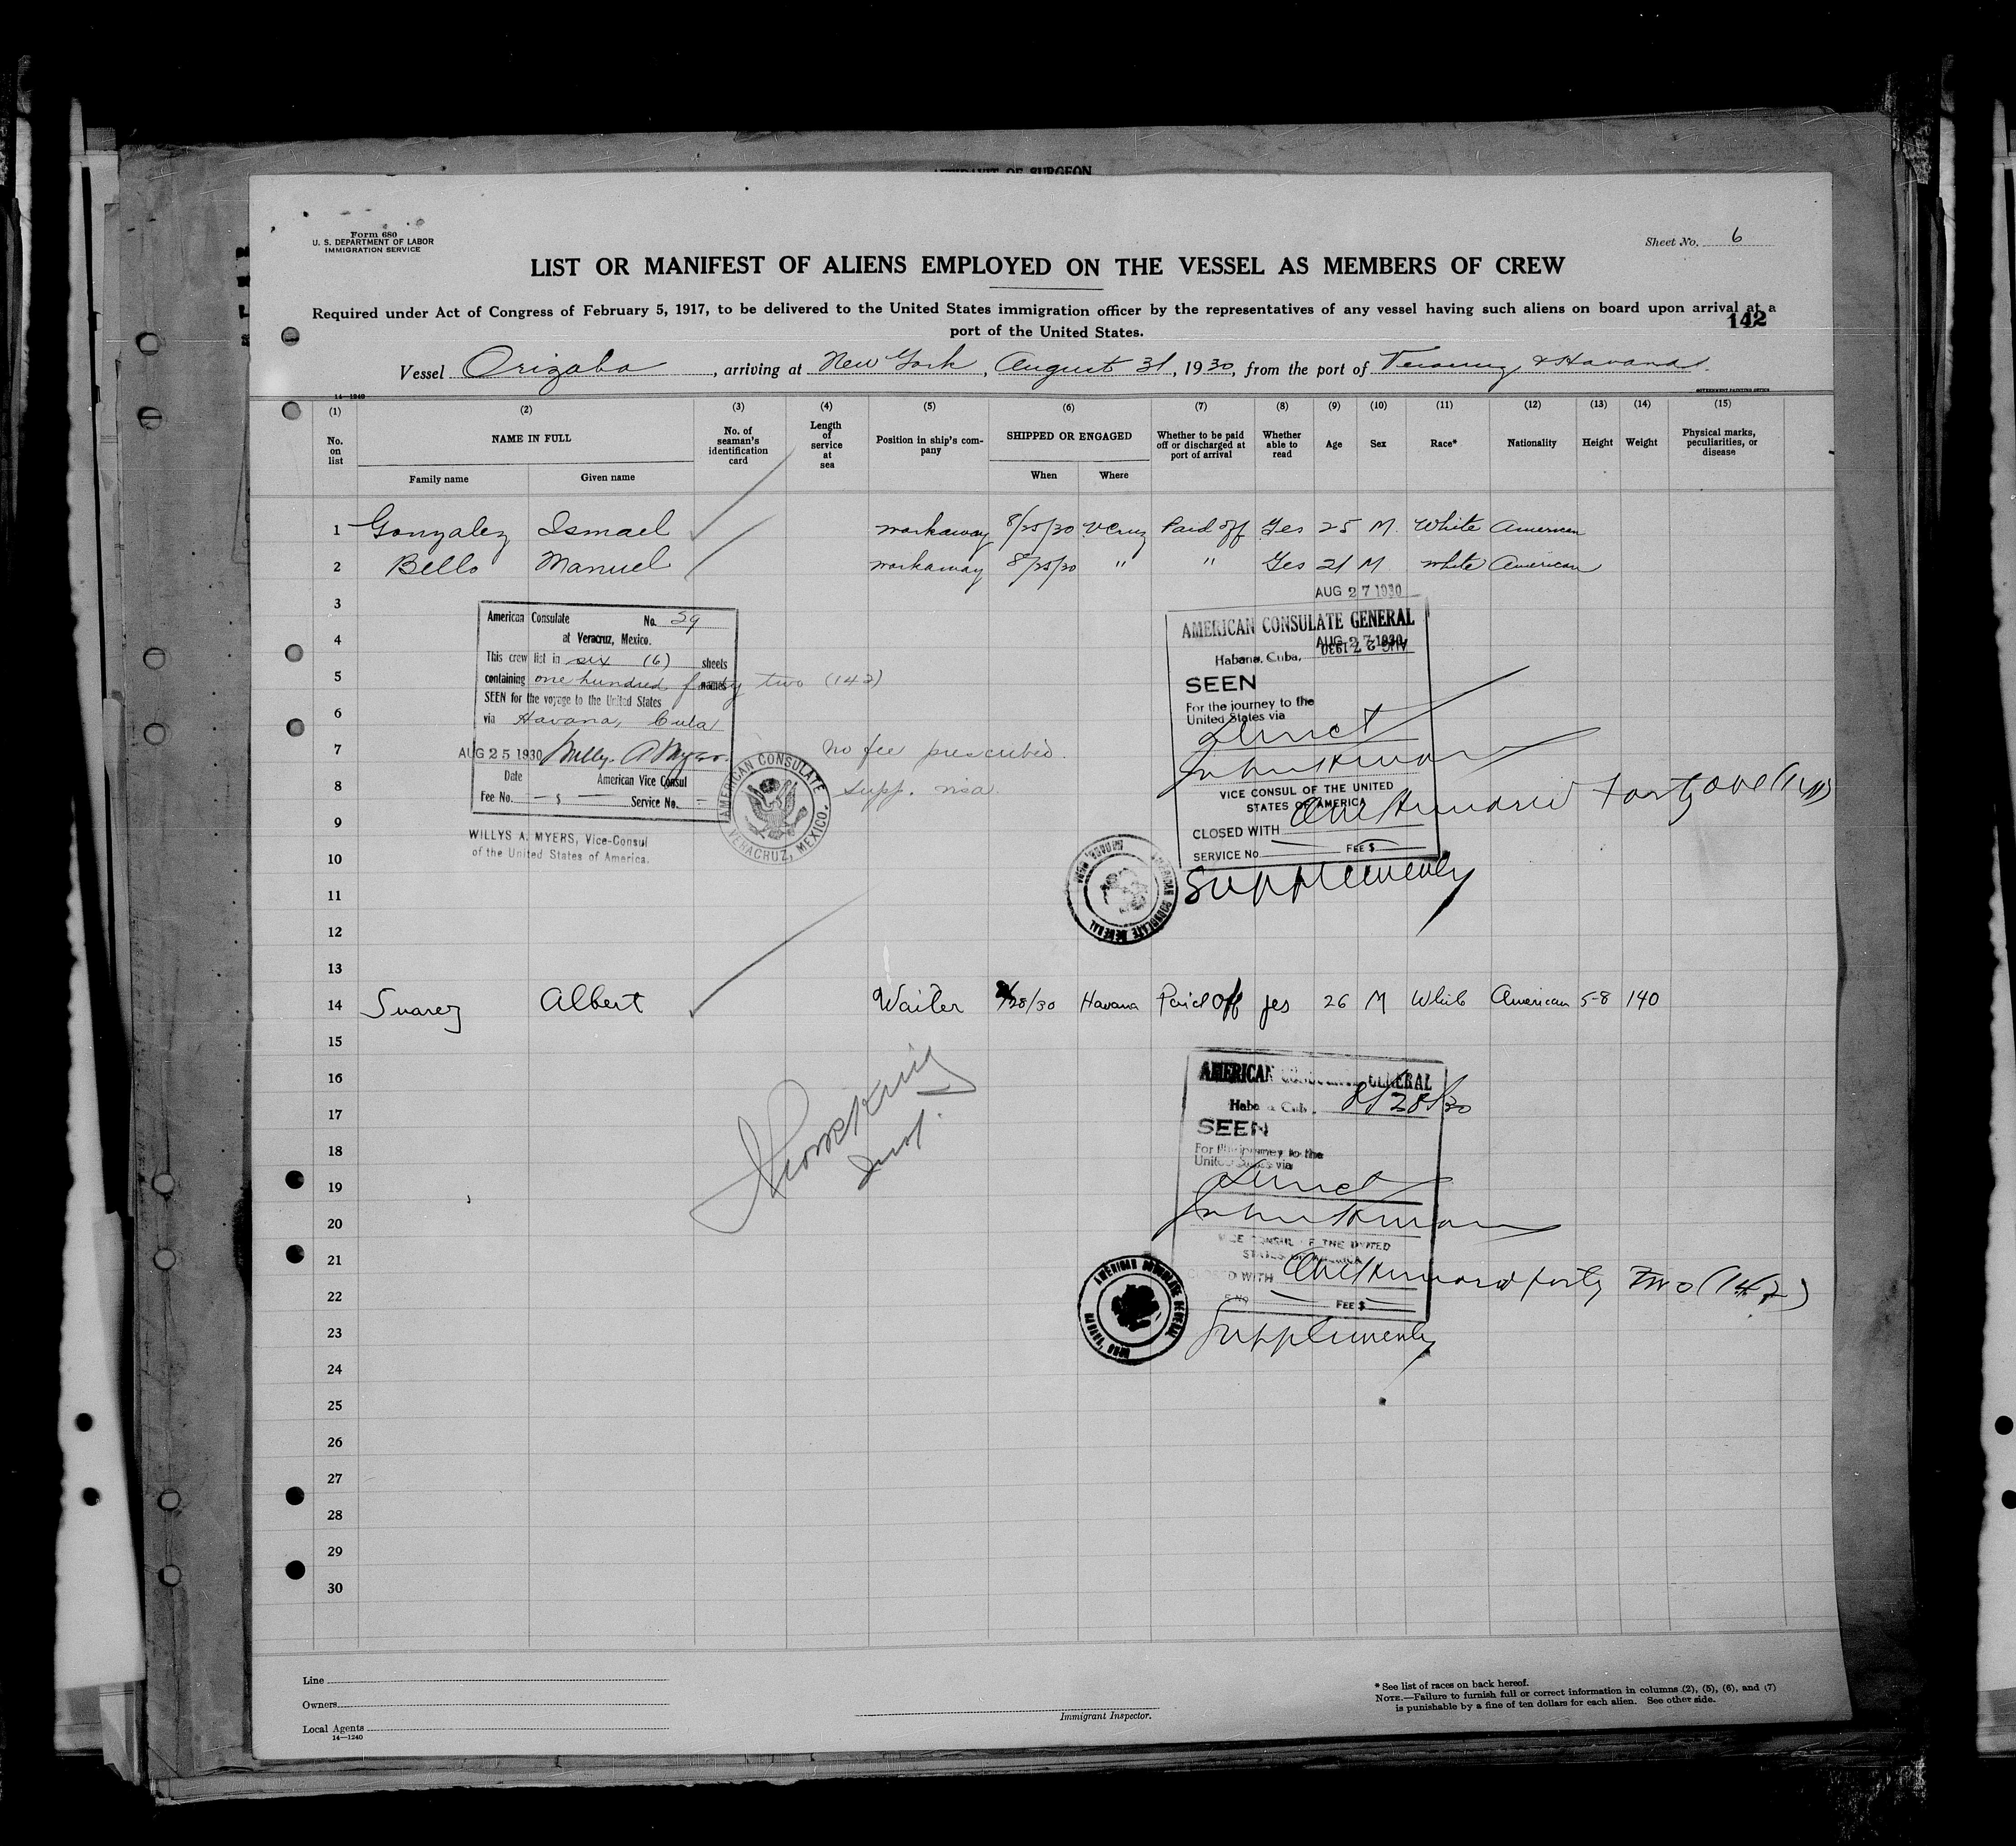 AFFIDAVIT OF SURGEON
Form 680
U. S. DEPARTMENT OF LABOR
IMMIGRATION SERVICE
Sheet No. 6
LIST OR MANIFEST OF ALIENS EMPLOYED ON THE VESSEL AS MEMBERS OF CREW
Required under Act of Congress of February 5, 1917, to be delivered to the United States immigration officer by the representatives of any vessel having such aliens on board upon arrival at a
port of the United States.
142
Vessel Orizaba, arriving at New York, August 31, 1930, from the port of Veracruz & Havana.
14—1240
GOVERNMENT PRINTING OFFICE
(1) (2) (3) (4) (5) (6) (7) (8) (9) (10) (11) (12) (13) (14) (15)
No. on list NAME IN FULL No. of seaman's identification card Length of service at sea Position in ship's company SHIPPED OR ENGAGED Whether to be paid off or discharged at port of arrival Whether able to read Age Sex Race* Nationality Height Weight Physical marks, peculiarities, or disease
Family name Given name When Where
1 Gonzalez Ismael workaway 8/25/30 VCruz Paid off Yes 25 M. White American
2 Bello Manuel workaway 8/25/30 " " Yes 21 M white American
3
4
5
6
7
8
9
10
11
12
13
American Consulate No. 59
at Veracruz, Mexico.
This crew list in six (6) sheets
containing one hundred forty two (142) names
SEEN for the voyage to the United States
via Havana, Cuba
AUG 25 1930 Willys A Myers
Date American Vice Consul
Fee No. — $ — Service No. —
WILLYS A. MYERS, Vice-Consul
of the United States of America.
AMERICAN CONSULATE
VERACRUZ, MEXICO.
No fee prescribed.
Supp. visa.
AUG 27 1930
AMERICAN CONSULATE GENERAL
AUG 27 1930
AUG 27 1930
Habana, Cuba,
SEEN
For the journey to the
United States via
Direct
VICE CONSUL OF THE UNITED
STATES OF AMERICA
CLOSED WITH One Hundred forty one (141)
SERVICE No. FEE $
AMERICAN CONSULATE GENERAL
Supplementy
14 Suarez Albert Waiter 8/28/30 Havana Paid Off yes 26 M White American 5-8 140
15
16
17
18
19
20
21
22
23
24
25
26
27
28
29
30
Insp.
AMERICAN CONSULATE GENERAL
Habana Cuba, 8/28/30
SEEN
For the journey to the
United States via
Direct
VICE CONSUL OF THE UNITED
STATES OF AMERICA
CLOSED WITH One Hundred forty two (142)
E NO FEE $
AMERICAN CONSULATE GENERAL
Supplementy
Line
Owners
Local Agents
14—1240
Immigrant Inspector.
* See list of races on back hereof.
NOTE.—Failure to furnish full or correct information in columns (2), (5), (6), and (7)
is punishable by a fine of ten dollars for each alien. See other side.